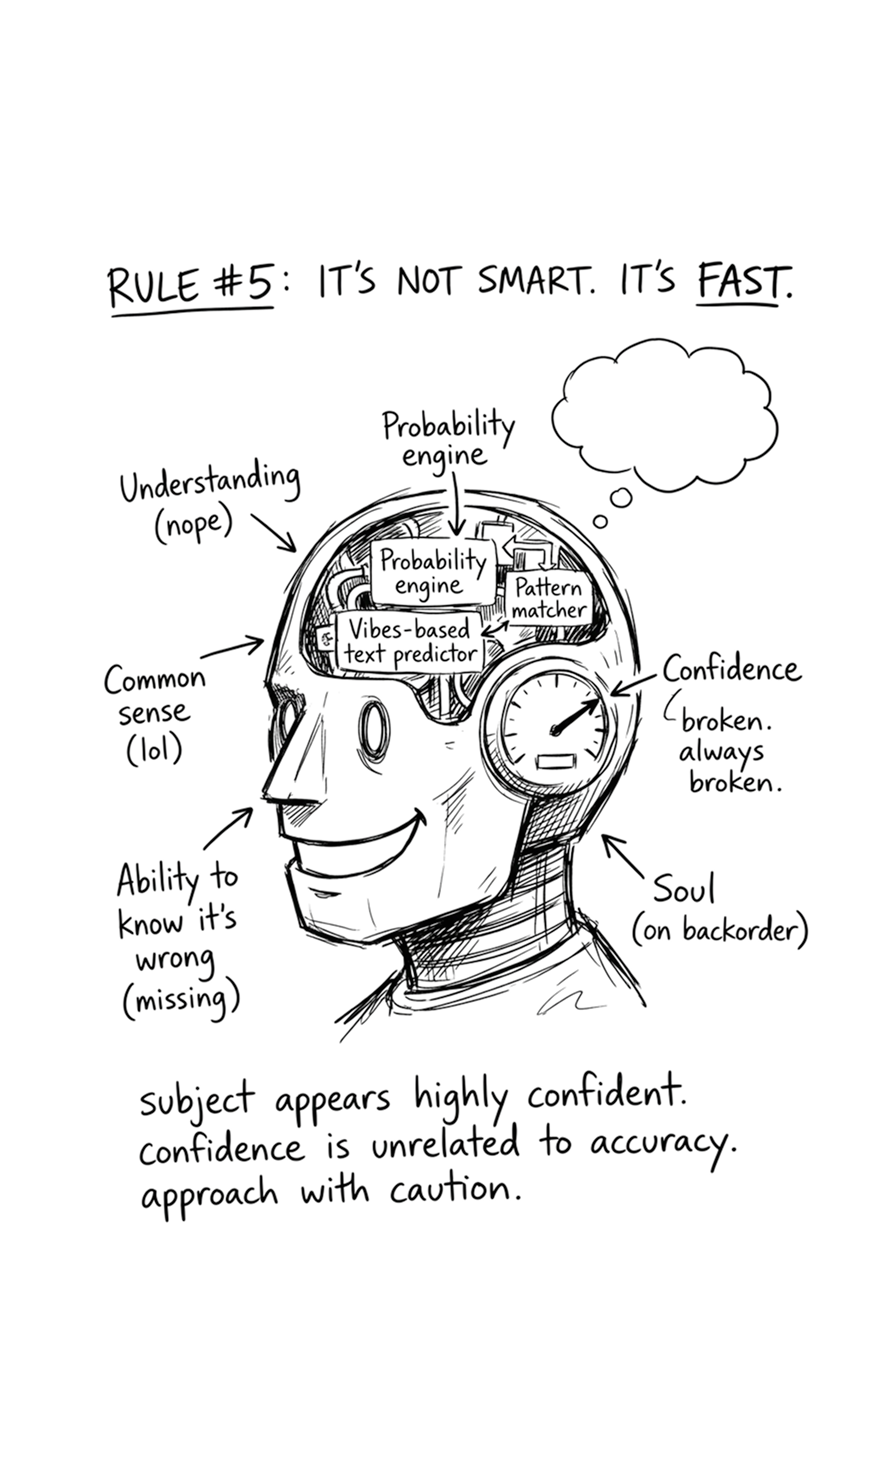 RULE #5: IT'S NOT SMART. IT'S FAST.
Probability
engine
Understanding
(nope)
Probability
engine
Pattern
matcher
Vibes-based
text predictor
Common
sense
(lol)
Confidence
broken.
always
broken.
Ability to
know it's
wrong
(missing)
Soul
(on backorder)
subject appears highly confident.
confidence is unrelated to accuracy.
approach with caution.